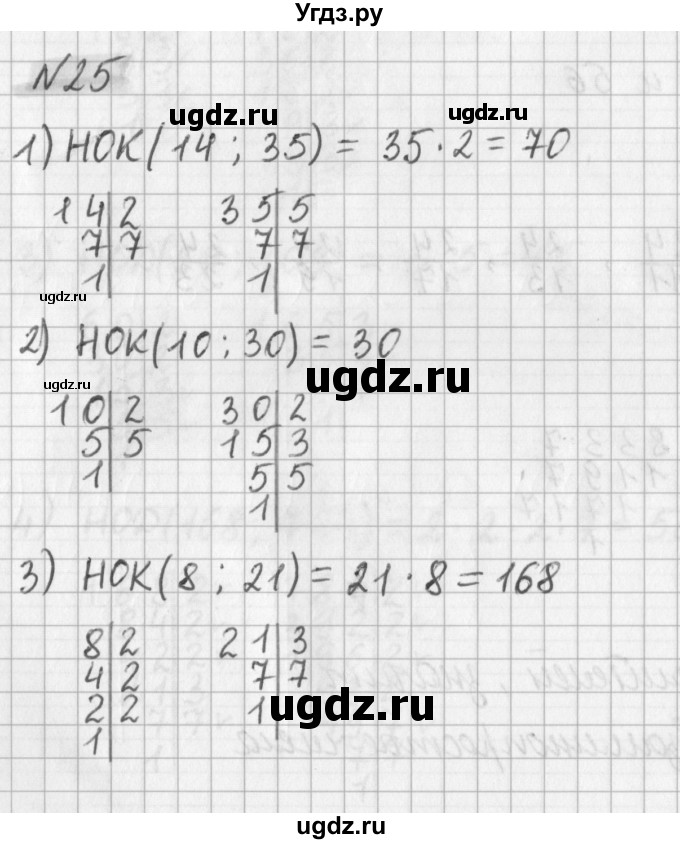 Угдз.ру
№25
ugdz.ru
ugdz.ru
1) НОК(14 ; 35) = 35·2 = 70
14|2 35|5
7|7 7|7
1| 1|
ugdz.ru
2) НОК(10 ; 30) = 30
ugdz.ru
ugdz.ru
10|2 30|2
5|5 15|3
1| 5|5
1|
3) НОК(8 ; 21) = 21·8 = 168
8|2 21|3
4|2 7|7
2|2 1|
1|
ugdz.ru
ugdz.ru